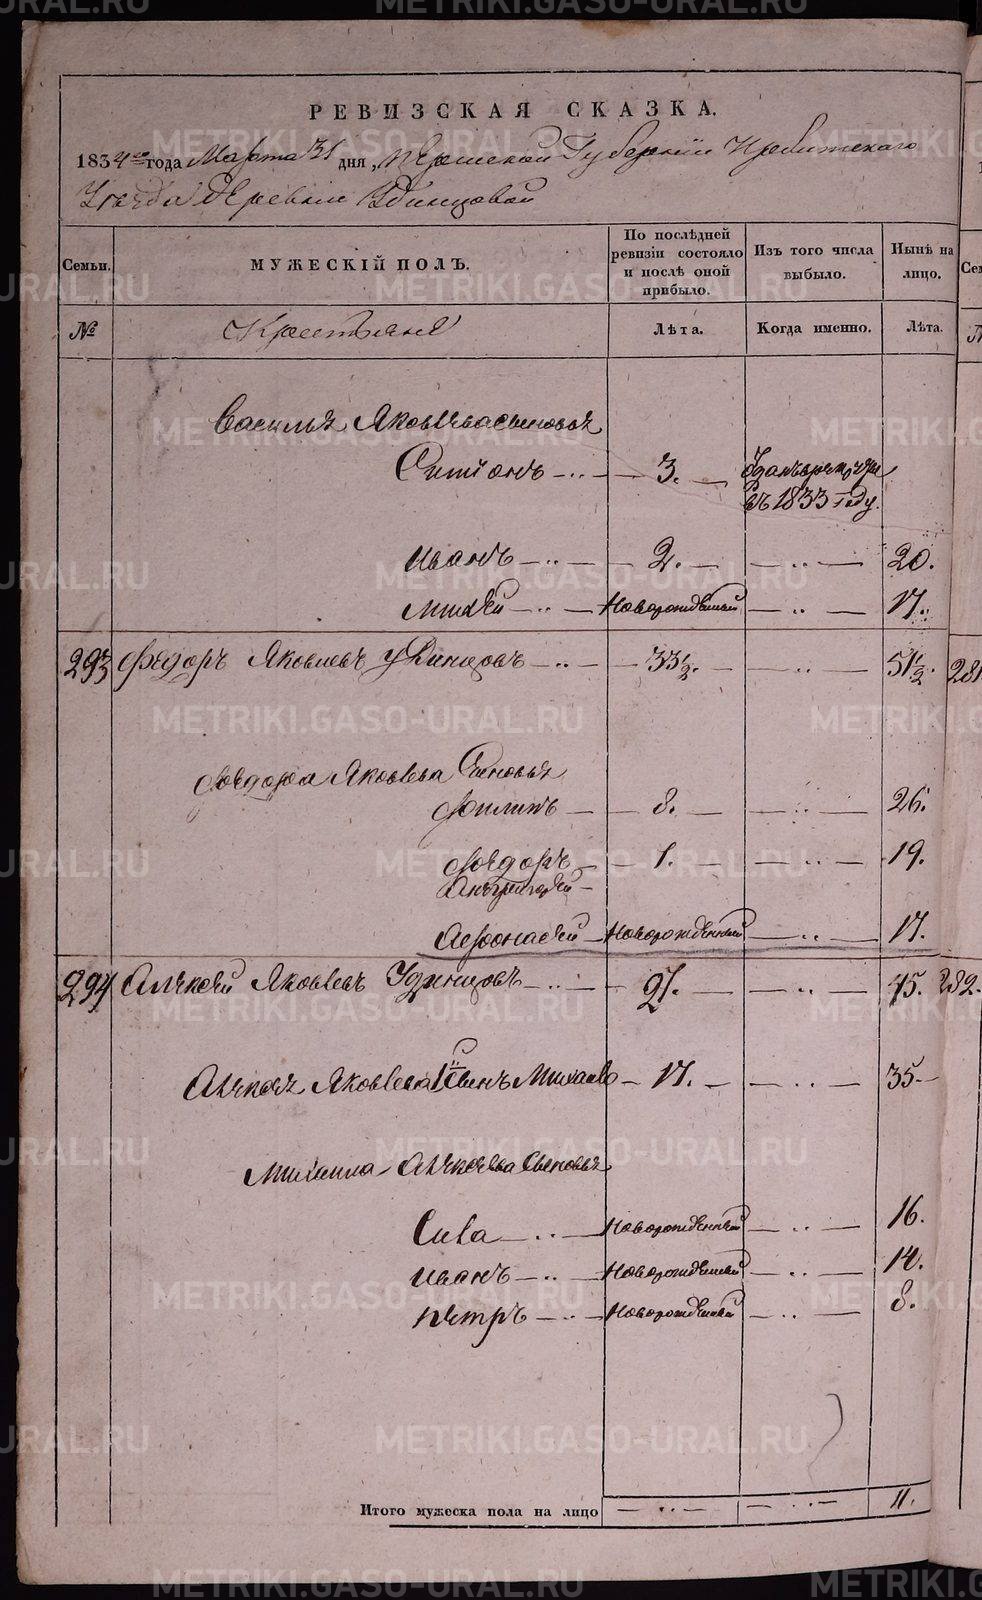 РЕВИЗСКАЯ СКАЗКА.
1834го года Марта 31 дня, Пермской Губернии Ирбитскаго
Уезда деревни Удинцовой
Семьи. МУЖЕСКІЙ ПОЛЪ. По послѣдней ревизіи состояло и послѣ оной прибыло. Изъ того числа выбыло. Нынѣ на лицо.
№ Крестьяне Лѣта. Когда именно. Лѣта.
Василья Яковлева сыновья
3. въ 1833 году.
Иванъ 2. 20.
Михей Новорожденный 17.
293 Федоръ Яковлевъ Удинцовъ 33½. 51½. 281
Федора Яковлева Сыновья
Филипъ 8. 26.
Федоръ 1. 19.
Афонасей Новорожденный 17.
294 Алексей Яковлевъ Удинцовъ 27. 45. 282.
Алексея Яковлева Сынъ Михайло 17. 35.
Михаила Алексеева Сыновья
Сива Новорожденный 16.
Иванъ Новорожденный 14.
Петръ Новорожденный 8.
Итого мужеска пола на лицо 11.
METRIKI.GASO-URAL.RU